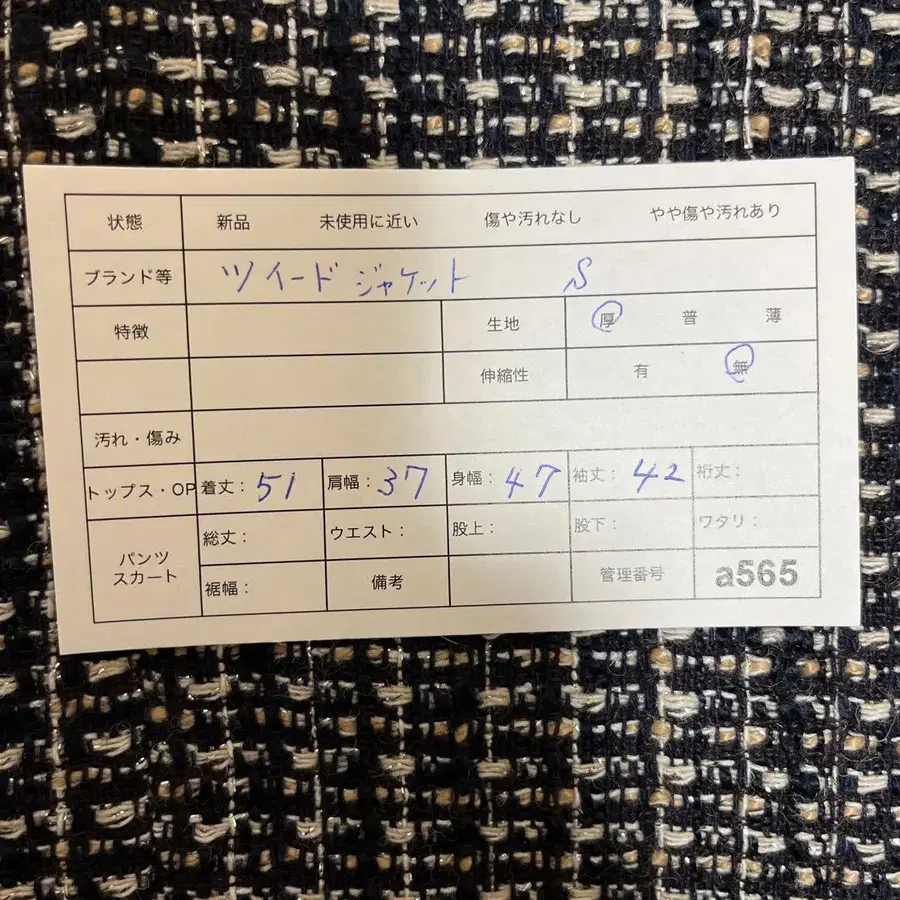 状態 新品 未使用に近い 傷や汚れなし やや傷や汚れあり
ブランド等 ツイードジャケット S
特徴 生地 厚 普 薄
伸縮性 有 無
汚れ・傷み
トップス・OP 着丈：51 肩幅：37 身幅：47 袖丈：42 裄丈：
パンツ スカート 総丈： ウエスト： 股上： 股下： ワタリ：
裾幅： 備考 管理番号 a565